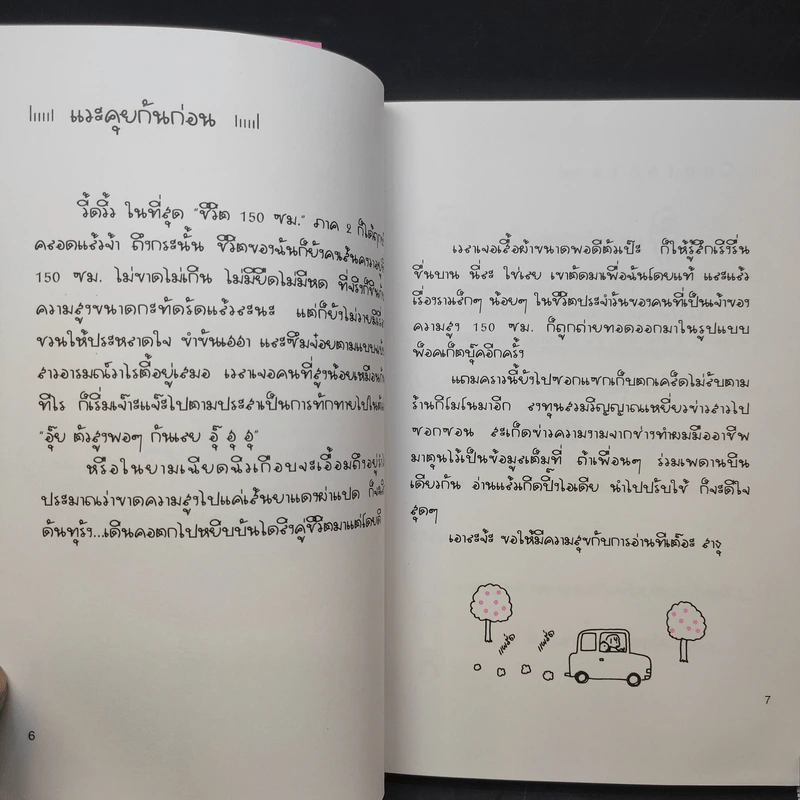 แวะคุยกันก่อน
วี้ดวิ้ว ในที่สุด "ชีวิต 150 ซม." ภาค 2 ก็ได้ฤกษ์
คลอดแล้วจ้า ถึงกระนั้น ชีวิตของฉันก็ยังคน
150 ซม. ไม่ขาดไม่เกิน ไม่มียืดไม่มีหด ที่จริงก็
ความสูงขนาดกะทัดรัดแล้วละนะ แต่ก็ยังไม่วายมี
ชวนให้ประหลาดใจ ขำขันเฮฮา และซึมจ๋อยตามแบบ
สาวอารมณ์วาไรตี้อยู่เสมอ เวลาเจอคนที่สูงน้อยเหมือน
ทีไร ก็เริ่มเจ๊าะแจ๊ะไปตามประสาเป็นการทักทายไปใน
"อุ๊ย ตัวสูงพอๆ กันเลย อุ๊ อุ อุ"
หรือในยามเฉียดฉิวเกือบจะเอื้อมถึงอยู่
ประมาณว่าขาดความสูงไปแค่เส้นยาแดงผ่าแปด ก็
ดันทุรัง...เดินคอตกไปหยิบบันไดลิงคู่ชีวิตมาแต่โดยดี
6
เวลาเจอเสื้อผ้าขนาดพอดีตัวเป๊ะ ก็ให้รู้สึกเริงรื่น
ชื่นบาน นี่ละ ใช่เลย เขาตัดมาเพื่อฉันโดยแท้ และแล้ว
เรื่องราวเล็กๆ น้อยๆ ในชีวิตประจำวันของคนที่เป็นเจ้าของ
ความสูง 150 ซม. ก็ถูกถ่ายทอดออกมาในรูปแบบ
พ็อคเก็ตบุ๊คอีกครั้ง
แถมคราวนี้ยังไปซอกแซกเก็บตกเคล็ดไม่ลับตาม
ร้านกิโมโนมาอีก ลงทุนสวมวิญญาณเหยี่ยวข่าวสาวไป
ซอกซอน สะเก็ดข่าวความงามจากช่างทำผมมืออาชีพ
มาตุนไว้เป็นข้อมูลเต็มที่ ถ้าเพื่อนๆ ร่วมเพดานบิน
เดียวกัน อ่านแล้วเกิดปิ๊งไอเดีย นำไปปรับใช้ ก็จะดีใจ
สุดๆ
เอาละจ้ะ ขอให้มีความสุขกับการอ่านทีเต๊อะ สาธุ
แผล็ด แผล็ด
7